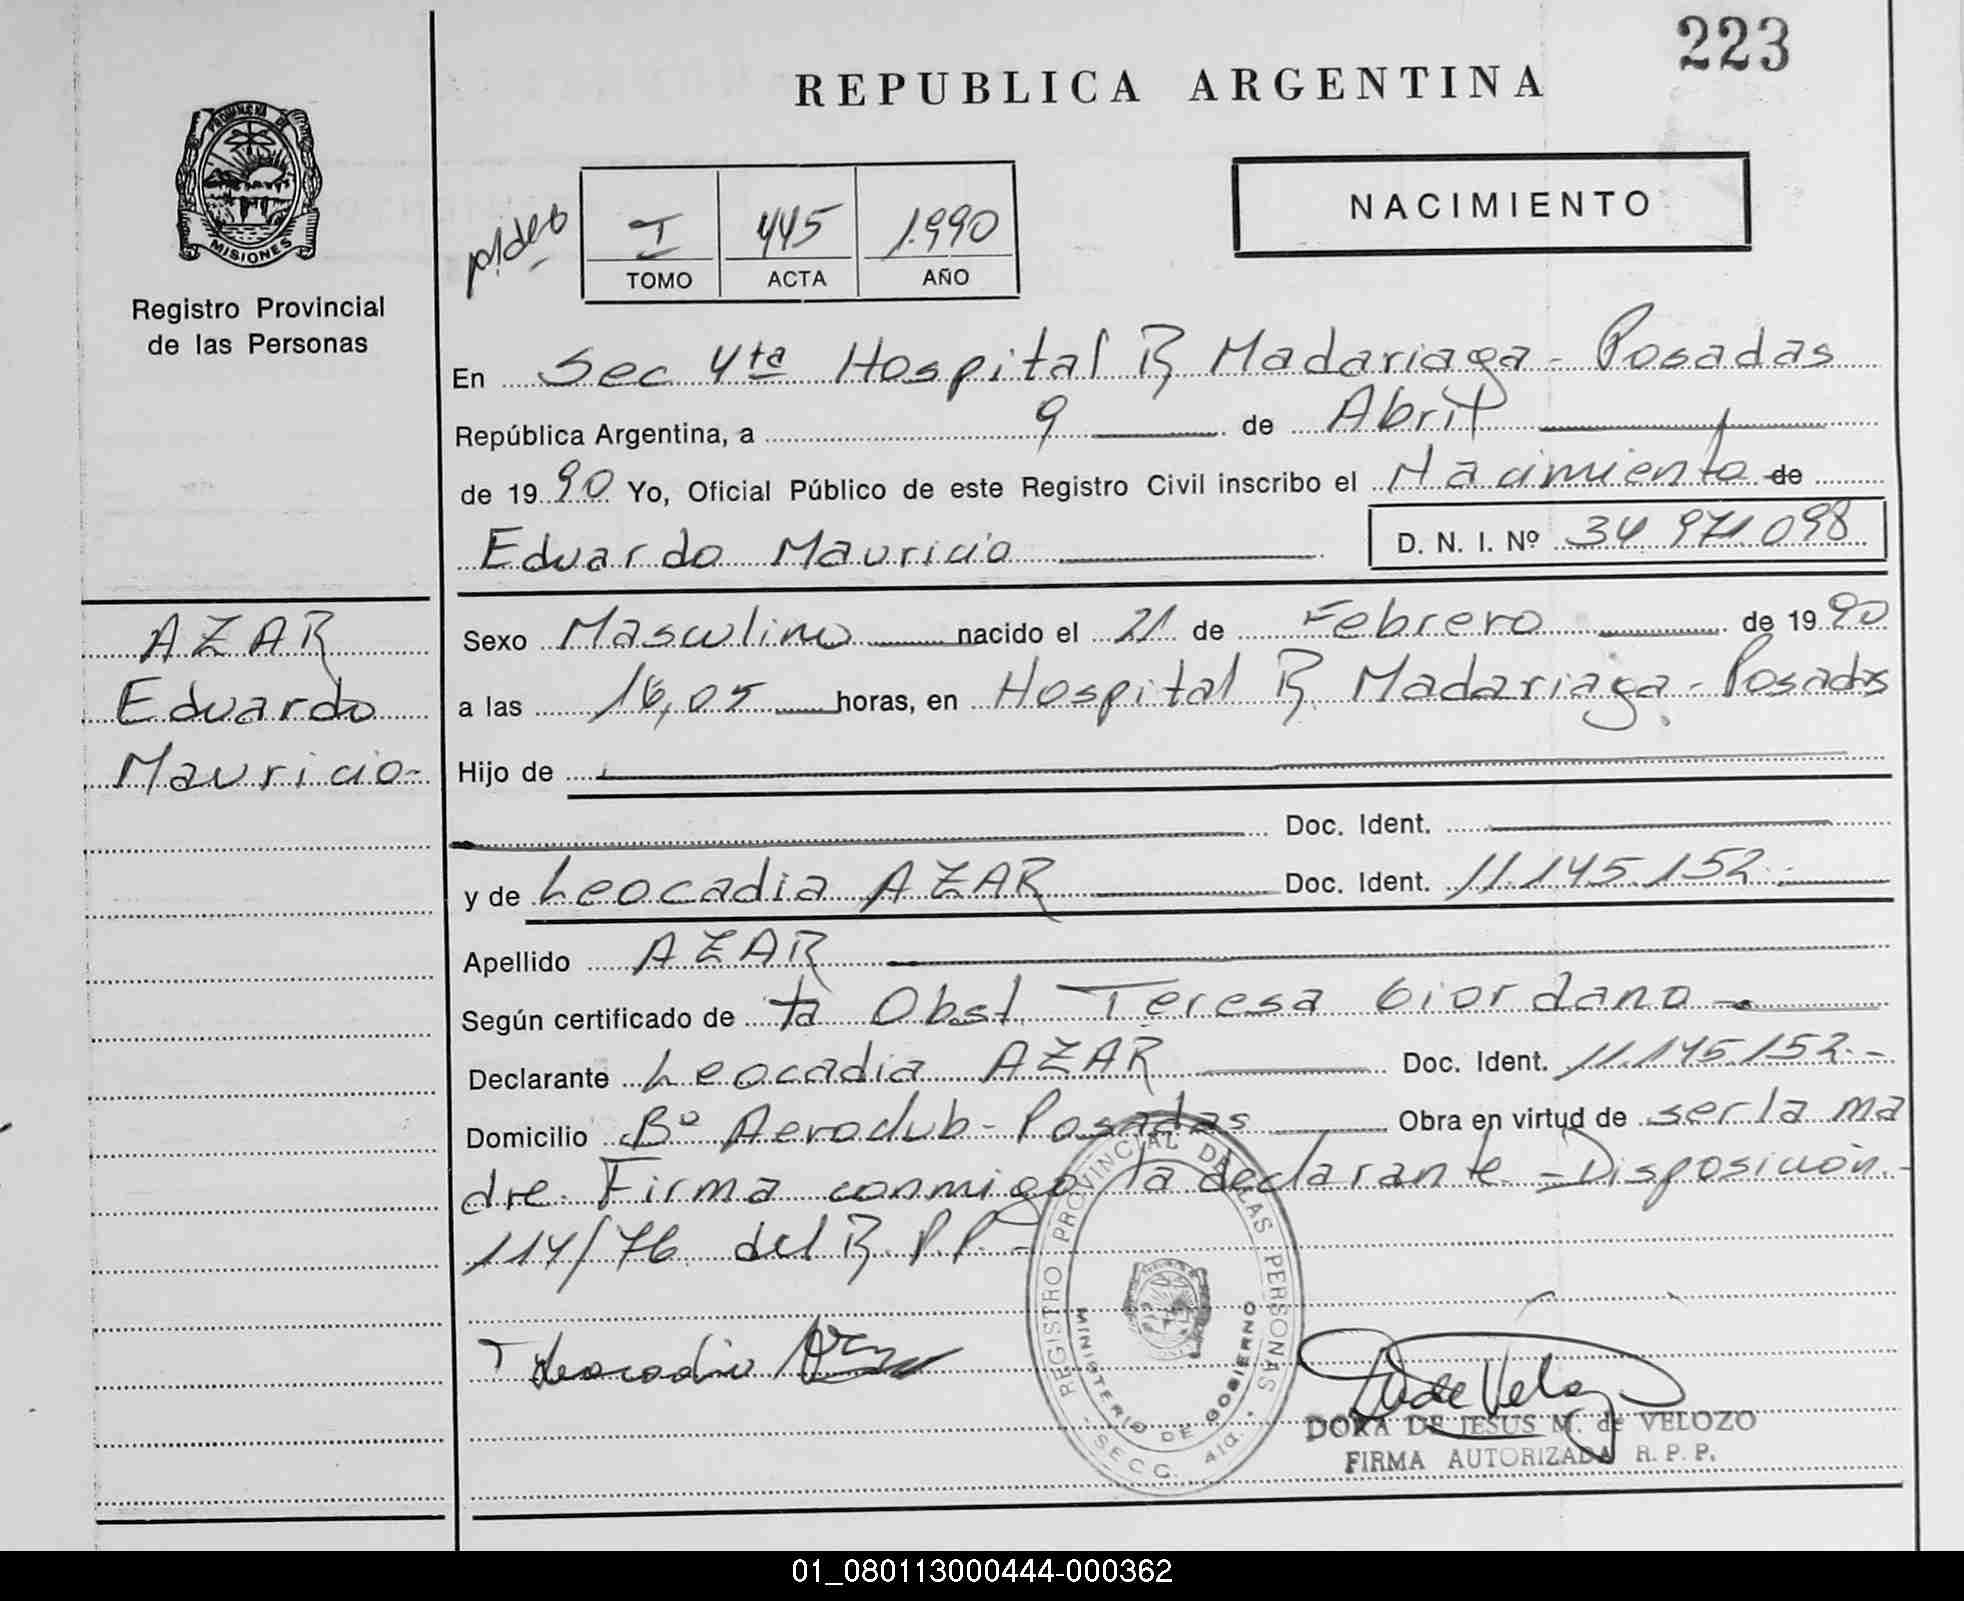 223
REPUBLICA ARGENTINA
PROVINCIA DE
MISIONES
Registro Provincial
de las Personas
NACIMIENTO
I 445 1.990
TOMO ACTA AÑO
En Sec 4ta Hospital R Madariaga - Posadas
República Argentina, a 9 de Abril
de 1990 Yo, Oficial Público de este Registro Civil inscribo el Nacimiento de
Eduardo Mauricio D. N. I. Nº 34.971.098
AZAR
Eduardo
Mauricio-
Sexo Masculino nacido el 21 de Febrero de 1990
a las 16,05 horas, en Hospital R. Madariaga - Posadas
Hijo de
Doc. Ident.
y de Leocadia AZAR Doc. Ident. 11.145.152.-
Apellido AZAR
Según certificado de la Obst. Teresa Giordano -
Declarante Leocadia AZAR Doc. Ident. 11.145.152.-
Domicilio Bº Aeroclub - Posadas Obra en virtud de ser la ma
dre. Firma conmigo la declarante - Disposición.-
114/76 del R.P.P.-
REGISTRO PROVINCIAL DE LAS PERSONAS
MINISTERIO DE GOBIERNO
SECC. 4ta.
Leocadia Azar
DORA DE JESUS M. de VELOZO
FIRMA AUTORIZADA R. P. P.
01_080113000444-000362